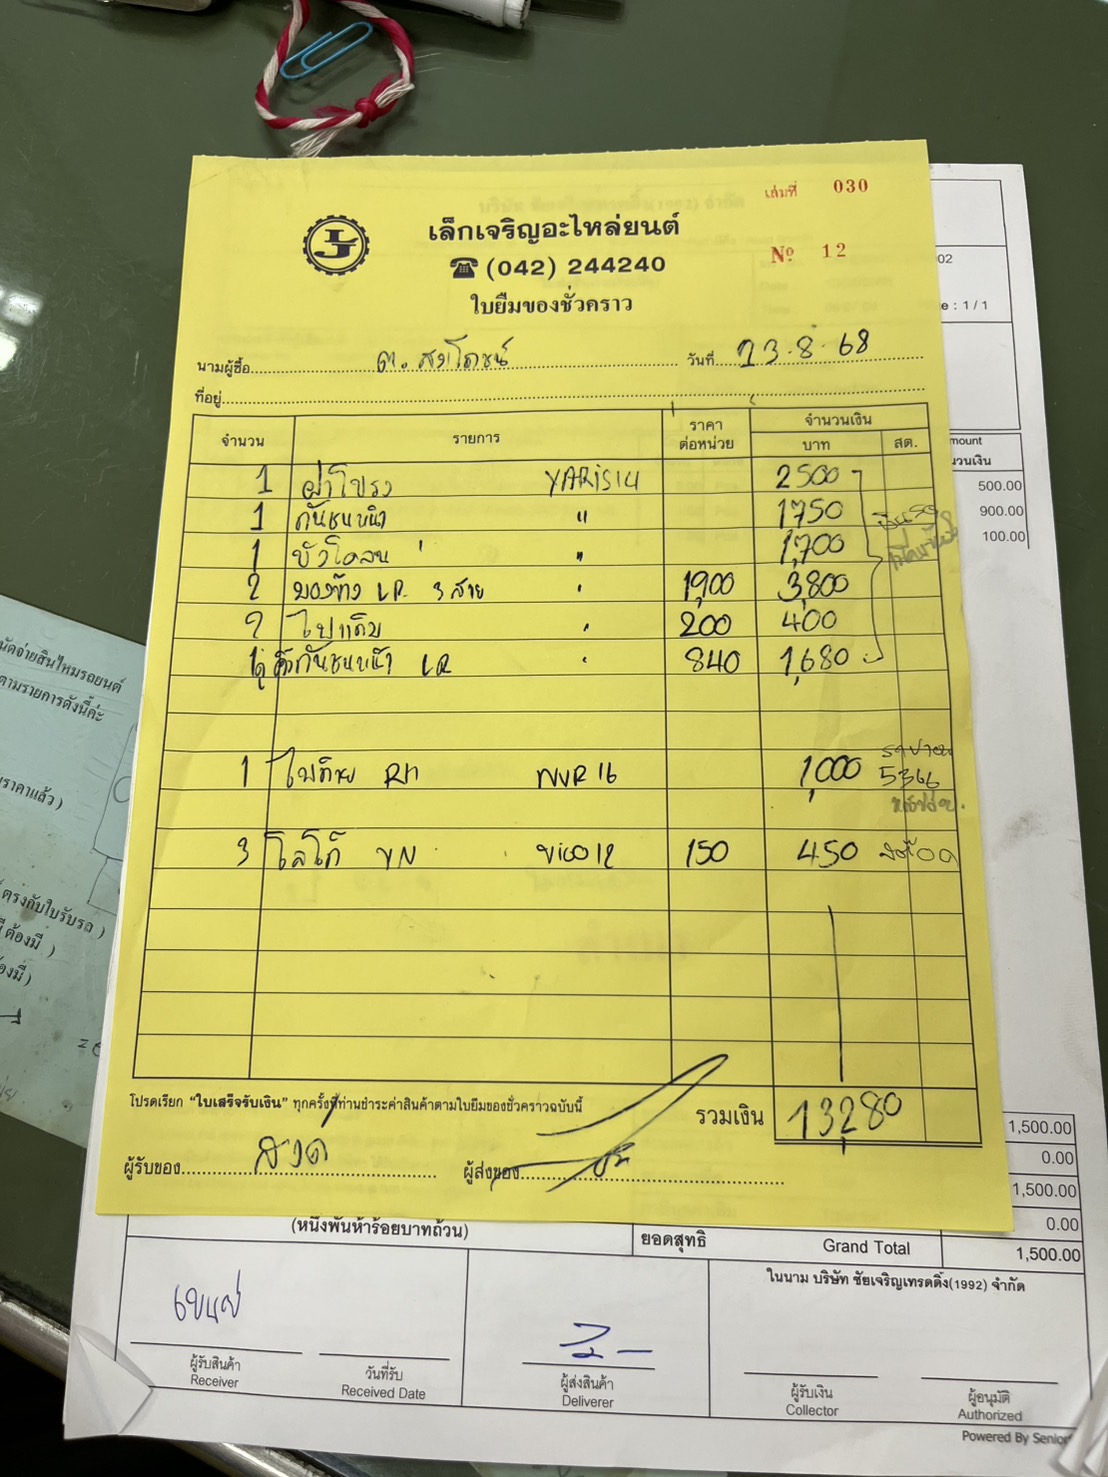 เล่มที่ 030
เล็กเจริญอะไหล่ยนต์
LJ
Nº 12
☎ (042) 244240
ใบยืมของชั่วคราว
นามผู้ซื้อ วันที่ 23.8.68
ที่อยู่
จำนวน รายการ ราคาต่อหน่วย จำนวนเงิน
บาท สต.
1 ฝาโปรง YARIS14 2500
1 กันชนหน้า " 1750
1 " 1,700
2 มองข้าง LR 3 สาย " 1,900 3,800
2 ไฟแต้ม " 200 400
1คู่ กันชนหน้า LR " 840 1,680
1 ไฟท้าย RH 1,000 5366
3 โลโก้ VICO12 150 450
โปรดเรียก “ใบเสร็จรับเงิน” ทุกครั้งที่ท่านชำระค่าสินค้าตามใบยืมของชั่วคราวฉบับนี้
รวมเงิน 13,280
ผู้รับของ ผู้ส่งของ
02
e : 1 / 1
mount
นวนเงิน
500.00
900.00
100.00
นัดจ่ายสินไหมรถยนต์
ตามรายการดังนี้ค่ะ
ราคาแล้ว )
ตรงกับใบรับรถ )
ต้องมี )
องมี )
1,500.00
0.00
1,500.00
0.00
(หนึ่งพันห้าร้อยบาทถ้วน) ยอดสุทธิ Grand Total 1,500.00
ในนาม บริษัท ชัยเจริญเทรดดิ้ง(1992) จำกัด
ผู้รับสินค้า วันที่รับ ผู้ส่งสินค้า ผู้รับเงิน ผู้อนุมัติ
Receiver Received Date Deliverer Collector Authorized
Powered By Senior